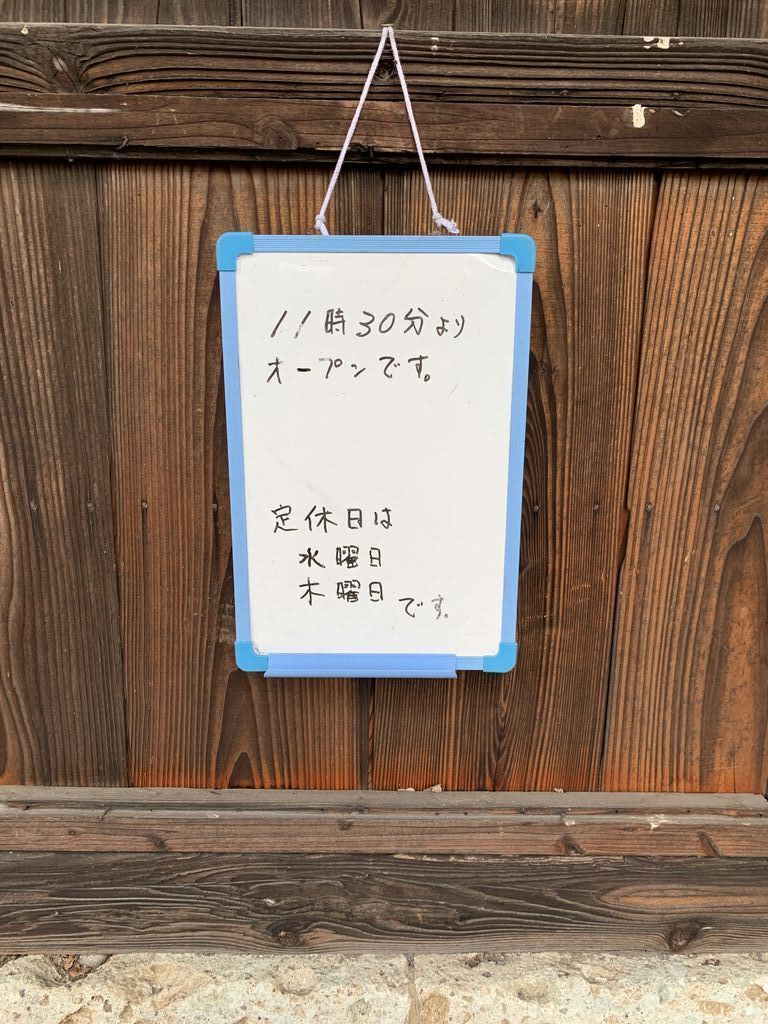 11時30分より
オープンです。
定休日は
水曜日
木曜日です。